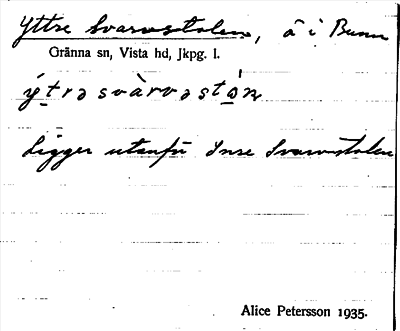 Yttre Svarvstolen, ö i Bunn
Gränna sn, Vista hd, Jkpg. l.
ý t r ə s v à r v ə s t ó n
Ligger utanför Inre Svarvstolen
Alice Petersson 1935.